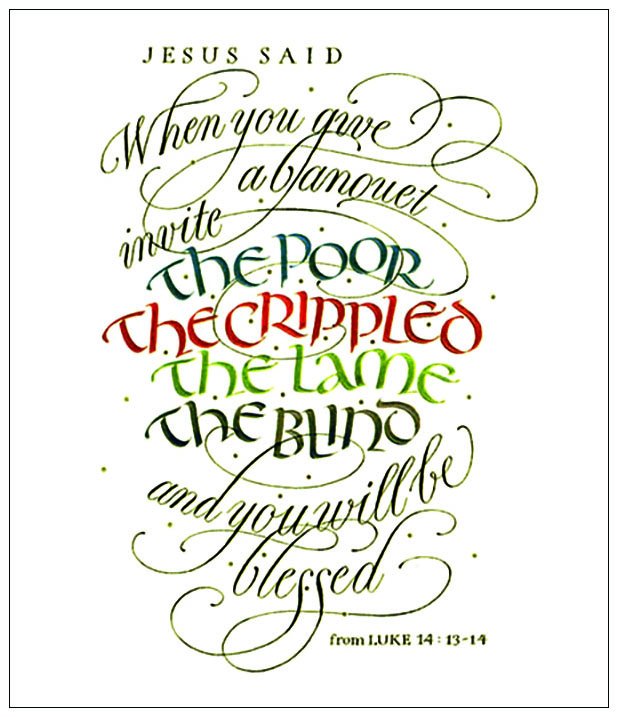 JESUS SAID
When you give
a banquet
invite
the POOR
the CRIPPLED
the LAME
the BLIND
and you will be
blessed
from LUKE 14:13-14